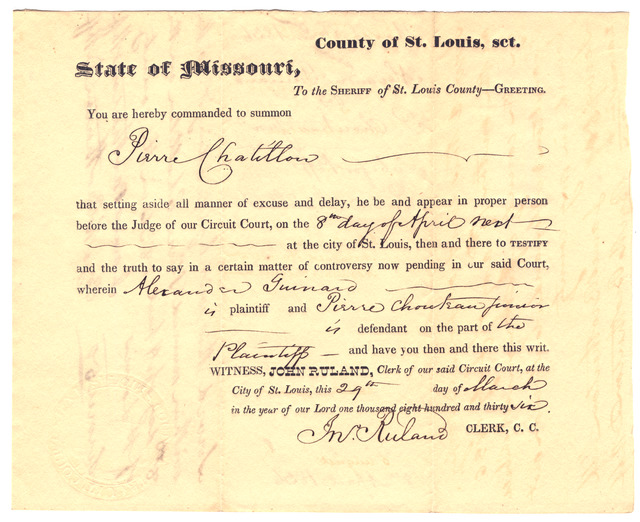 County of St. Louis, sct.
State of Missouri,
To the SHERIFF of St. Louis County—GREETING.
You are hereby commanded to summon
Pierre Chatillon
that setting aside all manner of excuse and delay, he be and appear in proper person
before the Judge of our Circuit Court, on the 8th day of April next
at the city of St. Louis, then and there to TESTIFY
and the truth to say in a certain matter of controversy now pending in our said Court,
wherein Alexander Guinard
is plaintiff and Pierre Chouteau junior
is defendant on the part of the
Plaintiff and have you then and there this writ.
WITNESS, JOHN RULAND, Clerk of our said Circuit Court, at the
City of St. Louis, this 29th day of March
in the year of our Lord one thousand eight hundred and thirty six.
Jno. Ruland CLERK, C. C.